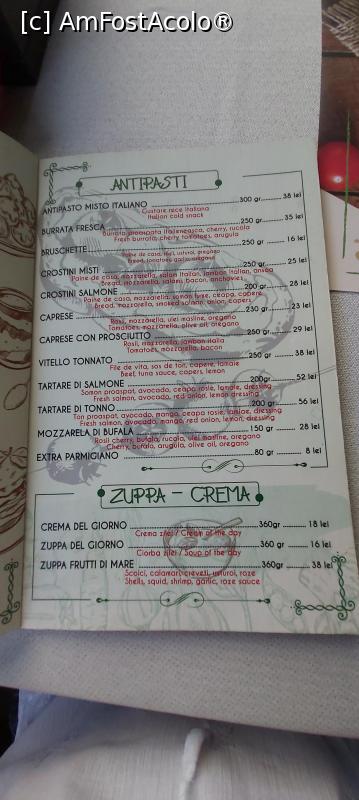 [c] AmFostAcolo®
ANTIPASTI
ANTIPASTO MISTO ITALIANO 300 gr. 38 lei
Gustare rece italiana
Italian cold snack
BURRATA FRESCA 250 gr. 35 lei
Burrata proaspata italieneasca, cherry, rucola
Fresh burrata, cherry tomatoes, arugula
BRUSCHETTE 250 gr 16 lei
Paine de casa, rosii, usturoi, oregano
Bread, tomatoes, garlic, oregano
CROSTINI MISTI 250 gr 25 lei
Paine de casa, mozzarella, salam italian, jambon italian, ansoa
Bread, mozzarella, salami, bacon, anchovies
CROSTINI SALMONE 200 gr. 28 lei
Paine de casa, mozzarella, somon fume, ceapa, capere
Bread, mozzarella, smoked salmon, onion, capers
CAPRESE 230 gr 23 lei
Rosii, mozzarella, ulei masline, oregano
Tomatoes, mozzarella, olive oil, oregano
CAPRESE CON PROSCIUTTO 250 gr. 29 lei
Rosii, mozzarella, jambon italia
Tomatoes, mozzarella, bacon
VITELLO TONNATO 250 gr 38 lei
File de vita, sos de ton, capere, lamaie
Beef, tuna sauce, capers, lemon
TARTARE DI SALMONE 200gr 52 lei
Somon proaspat, avocado, ceapa rosie, lamaie, dressing
Fresh salmon, avocado, red onion, lemon, dressing
TARTARE DI TONNO 200 gr. 56 lei
Ton proaspat, avocado, mango, ceapa rosie, lamaie, dressing
Fresh salmon, avocado, mango, red onion, lemon, dressing
MOZZARELA DI BUFALA 150 gr 28 lei
Rosii cherry, bufala, rucola, ulei masline, oregano
Cherry, bufala, arugula, olive oil, oregano
EXTRA PARMIGIANO 80 gr 8 lei
ZUPPA - CREMA
CREMA DEL GIORNO 360gr 18 lei
Crema zilei / Cream of the day
ZUPPA DEL GIORNO 360 gr 16 lei
Ciorba zilei / Soup of the day
ZUPPA FRUTTI DI MARE 360gr 38 lei
Scoici, calamari, creveti, usturoi, roze
Shells, squid, shrimp, garlic, roze sauce